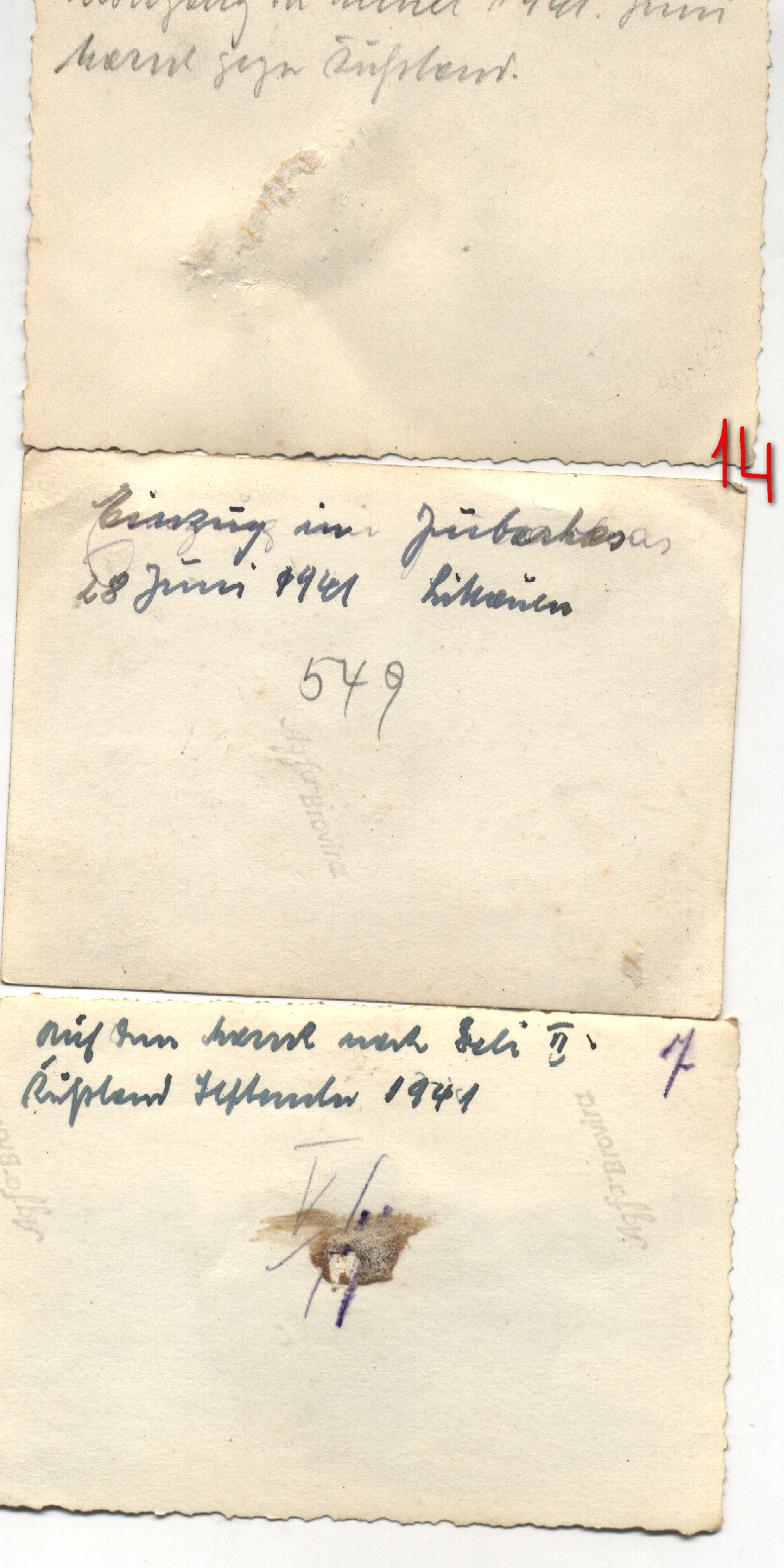 1941. Juni
Marsch gegen Rußland.
14
Einzug in Jubarkas
28 Juni 1941 Litauen
549
Agfa-Brovira
Auf dem Marsch nach Deli II.
7
Rußland September 1941
Agfa-Brovira